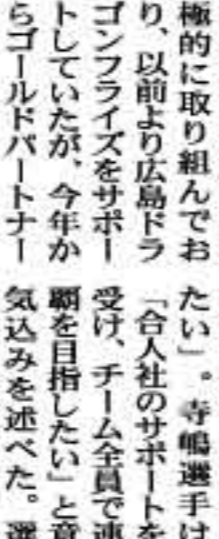 極的に取り組んでお
り、以前より広島ドラ
ゴンフライズをサポー
トしていたが、今年か
らゴールドパートナー
たい」。寺嶋選手は
「合人社のサポートを
受け、チーム全員で連
覇を目指したい」と意
気込みを述べた。選